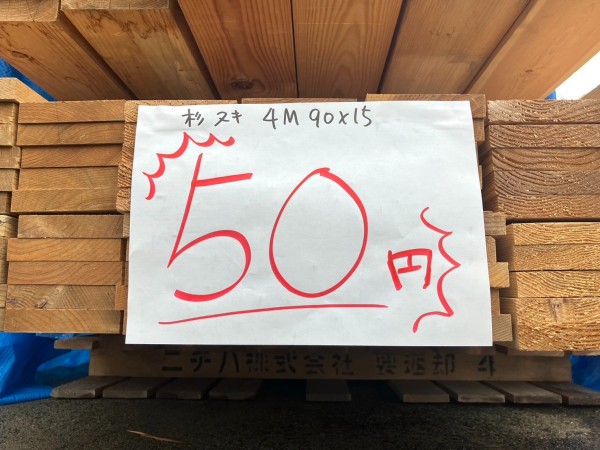 杉 ヌキ 4M 90×15
50円
ニチハ株式会社 要返却 4